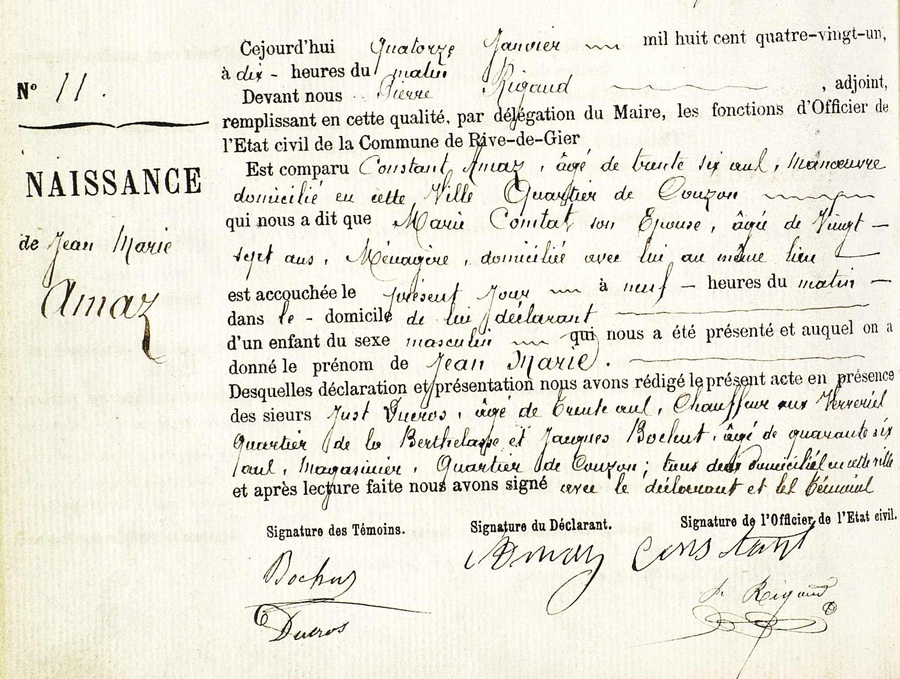 N° 11.
NAISSANCE
de Jean Marie
Amaz
Cejourd'hui Quatorze Janvier mil huit cent quatre-vingt-un,
à dix - heures du matin
Devant nous Pierre Rigaud , adjoint,
remplissant en cette qualité, par délégation du Maire, les fonctions d'Officier de
l'Etat civil de la Commune de Rive-de-Gier
Est comparu Constant Amaz, âgé de trente six ans, manœuvre
domicilié en cette Ville Quartier de Couzon
qui nous a dit que Marie Comtat son Epouse, âgé de Vingt —
sept ans, Ménagère, domicilié avec lui au même lieu —
est accouchée le présent jour à neuf — heures du matin —
dans le - domicile de lui déclarant
d'un enfant du sexe masculin qui nous a été présenté et auquel on a
donné le prénom de Jean Marie.
Desquelles déclaration et présentation nous avons rédigé le présent acte en présence
des sieurs Just Ducros, âgé de trente ans, Chauffeur aux Verreries
Quartier de la Berthelasse et Jacques Bochut, âgé de quarante six
ans, Magasinier, Quartier de Couzon; tous deux domiciliés en cette ville
et après lecture faite nous avons signé avec le déclarant et les témoins
Signature des Témoins. Signature du Déclarant. Signature de l'Officier de l'Etat civil.
Bochut Amaz Constant
P. Rigaud
Ducros